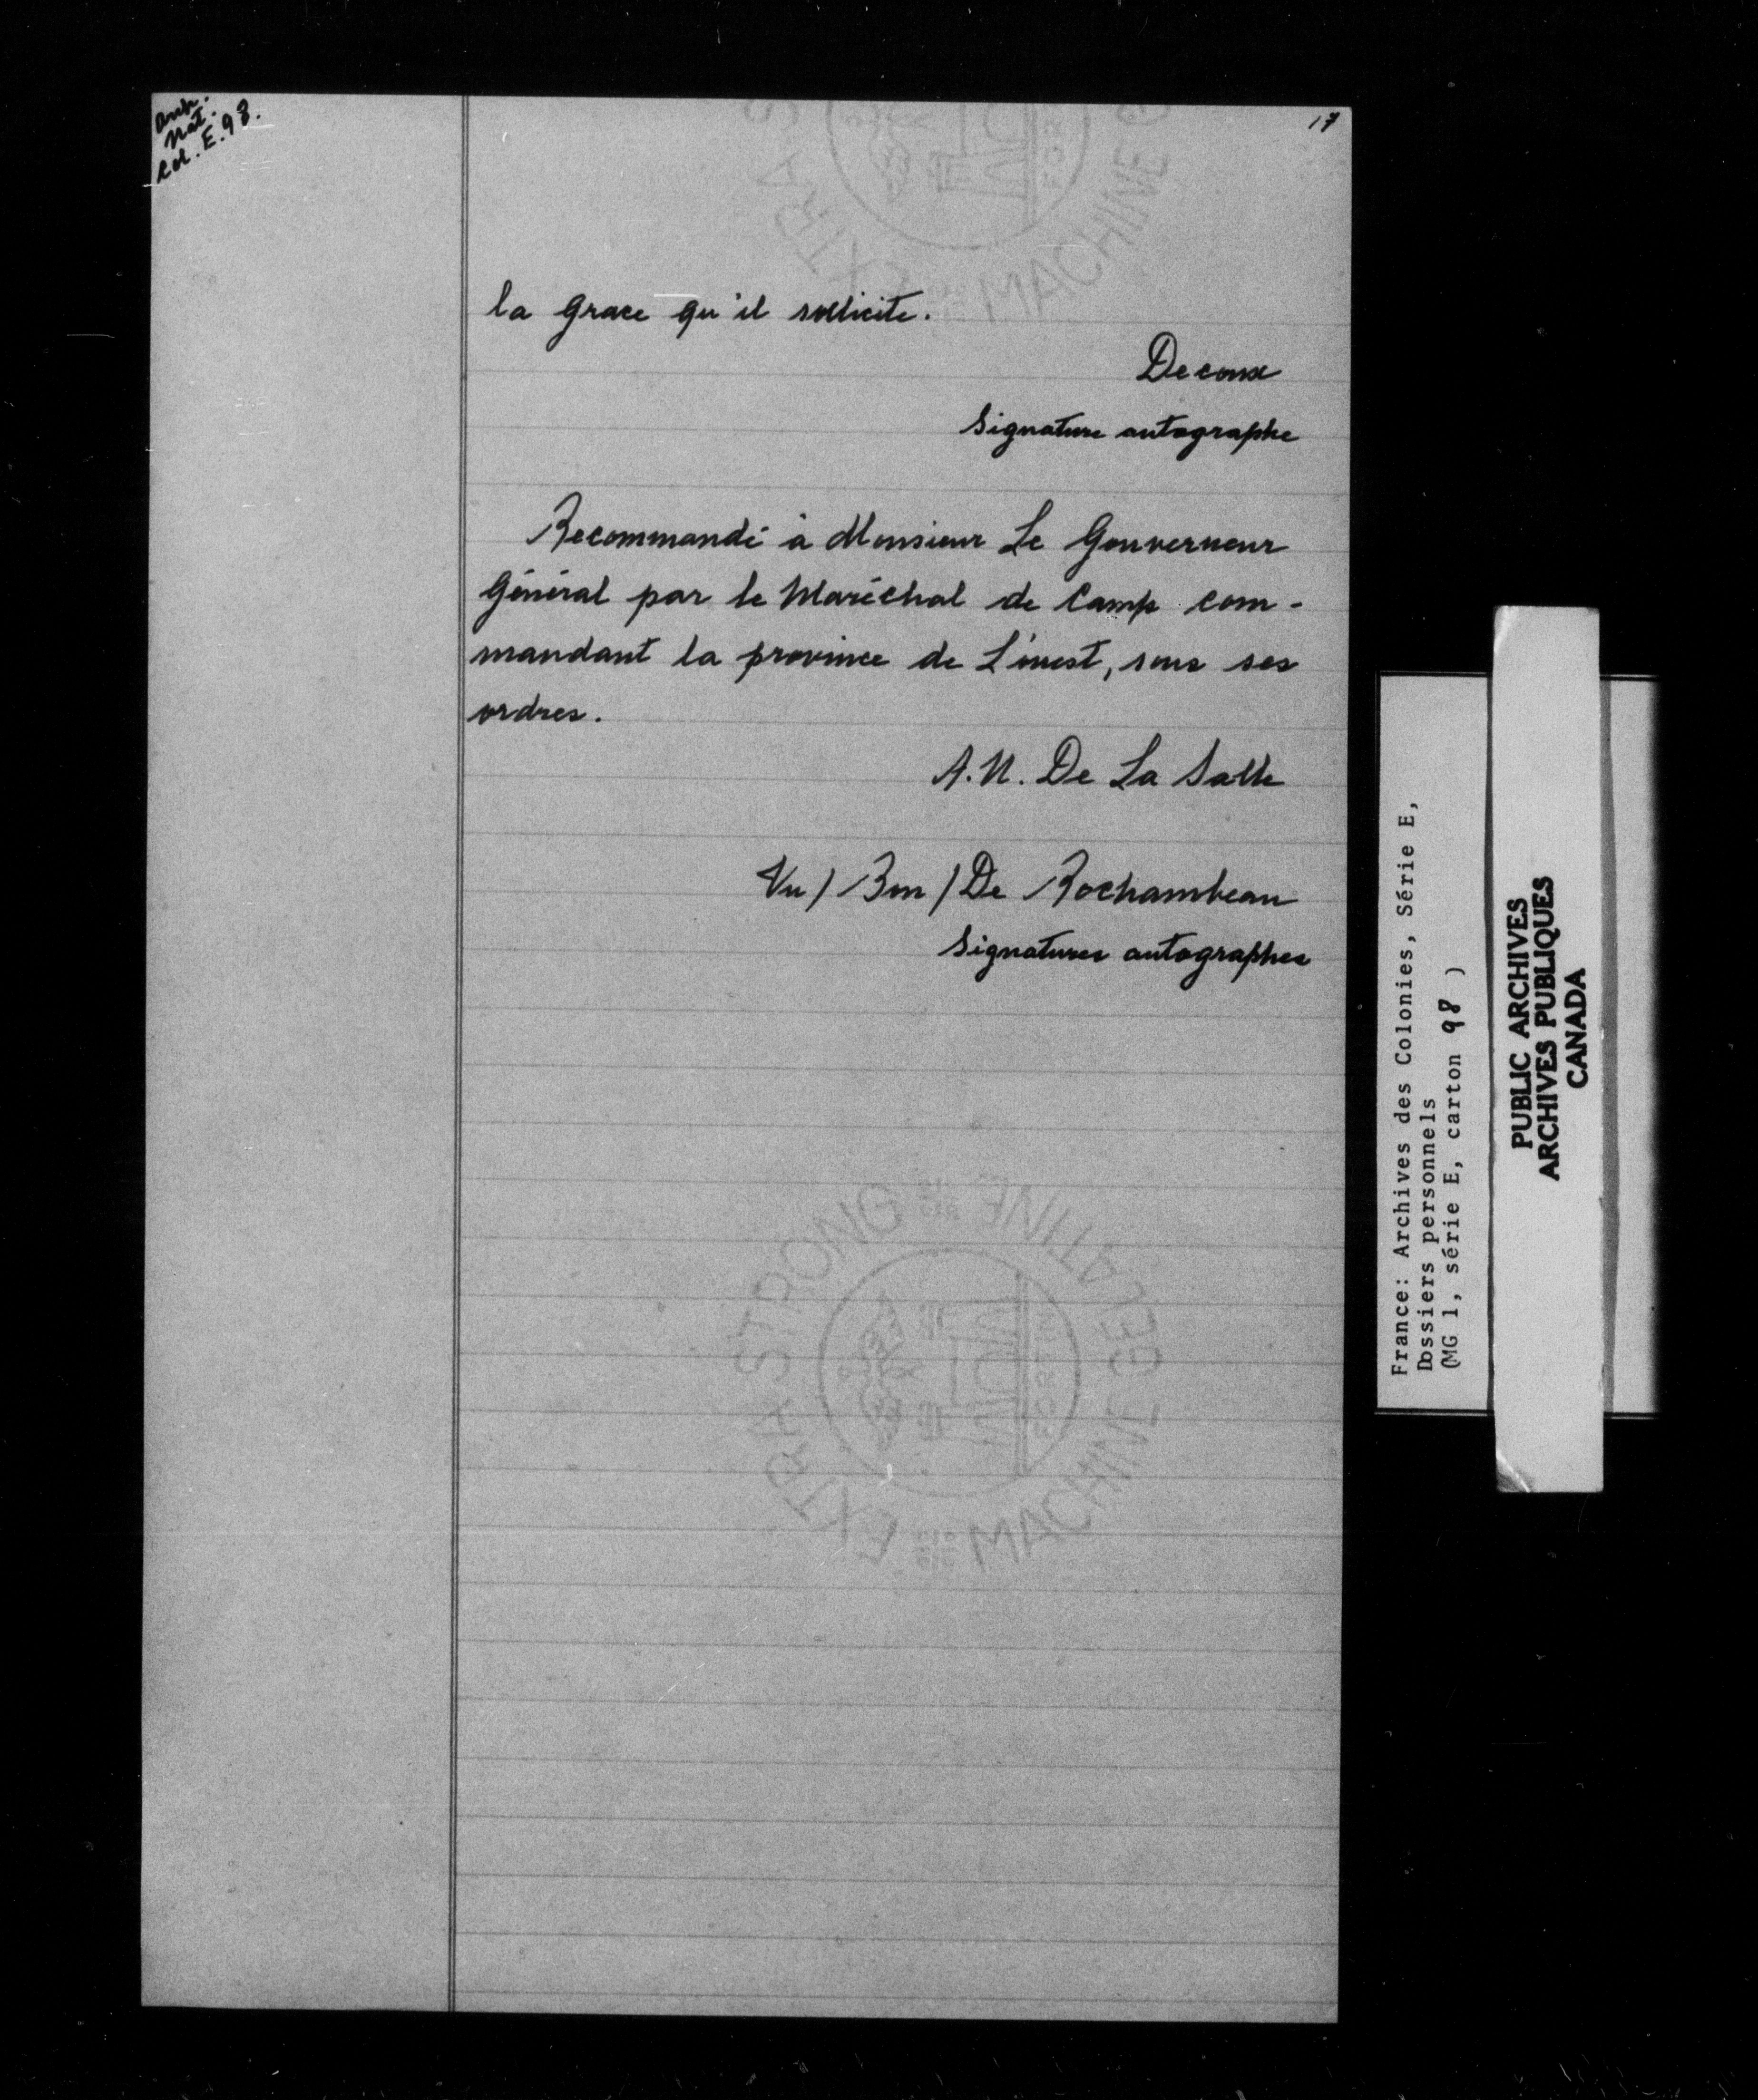 Arch.
Nat.
Col. E. 98.
17
la Grace qu'il sollicite.
Decoux
Signature autographe
Recommandé à Monsieur Le Gouverneur
Général par le Maréchal de Camp com-
mandant la province de L'ouest, sous ses
ordres.
A. N. De La Salle
Vu / Bon / De Rochambeau
Signatures autographes
EXTRA STRONG MACHINE GELATINE
France: Archives des Colonies, Série E,
Dossiers personnels
(MG 1, série E, carton 98 )
PUBLIC ARCHIVES
ARCHIVES PUBLIQUES
CANADA